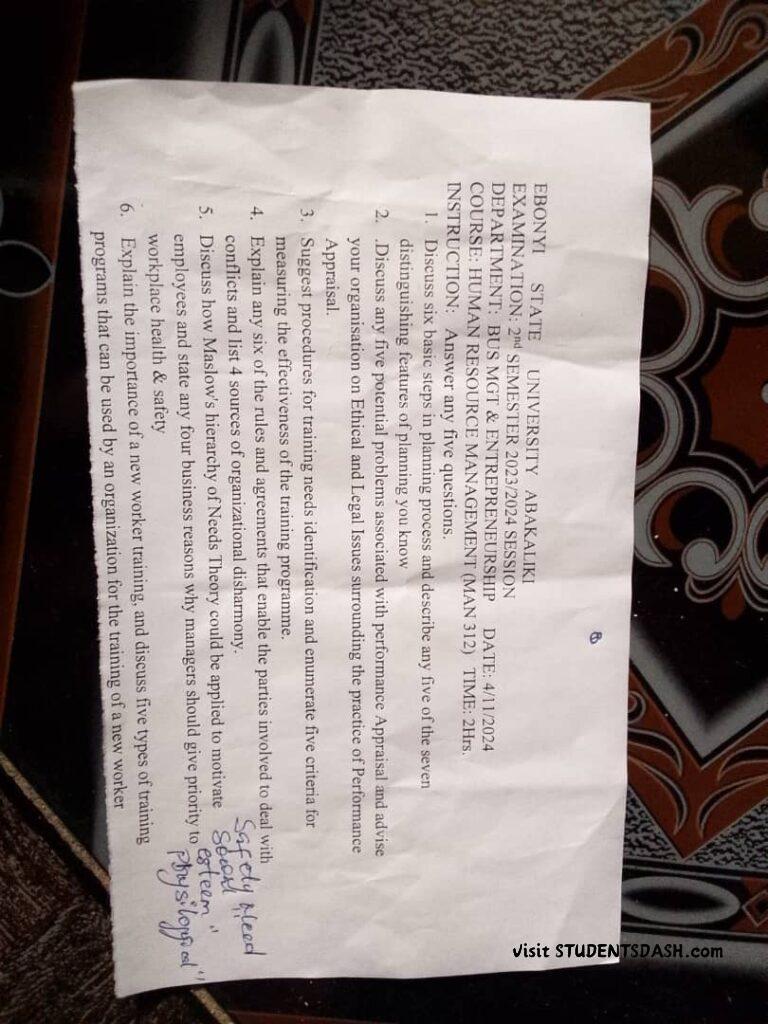 EBONYI STATE UNIVERSITY ABAKALIKI
EXAMINATION: 2nd SEMESTER 2023/2024 SESSION
DEPARTMENT: BUS MGT & ENTREPRENEURSHIP DATE: 4/11/2024
COURSE: HUMAN RESOURCE MANAGEMENT (MAN 312) TIME: 2Hrs.
INSTRUCTION: Answer any five questions.
1. Discuss six basic steps in planning process and describe any five of the seven
distinguishing features of planning you know
2. .Discuss any five potential problems associated with performance Appraisal and advise
your organisation on Ethical and Legal Issues surrounding the practice of Performance
Appraisal.
3. Suggest procedures for training needs identification and enumerate five criteria for
measuring the effectiveness of the training programme.
4. Explain any six of the rules and agreements that enable the parties involved to deal with
conflicts and list 4 sources of organizational disharmony.
5. Discuss how Maslow's hierarchy of Needs Theory could be applied to motivate
employees and state any four business reasons why managers should give priority to
workplace health & safety
6. Explain the importance of a new worker training, and discuss five types of training
programs that can be used by an organization for the training of a new worker
Safety Need
Social
esteem "
"
Visit STUDENTSDASH.com